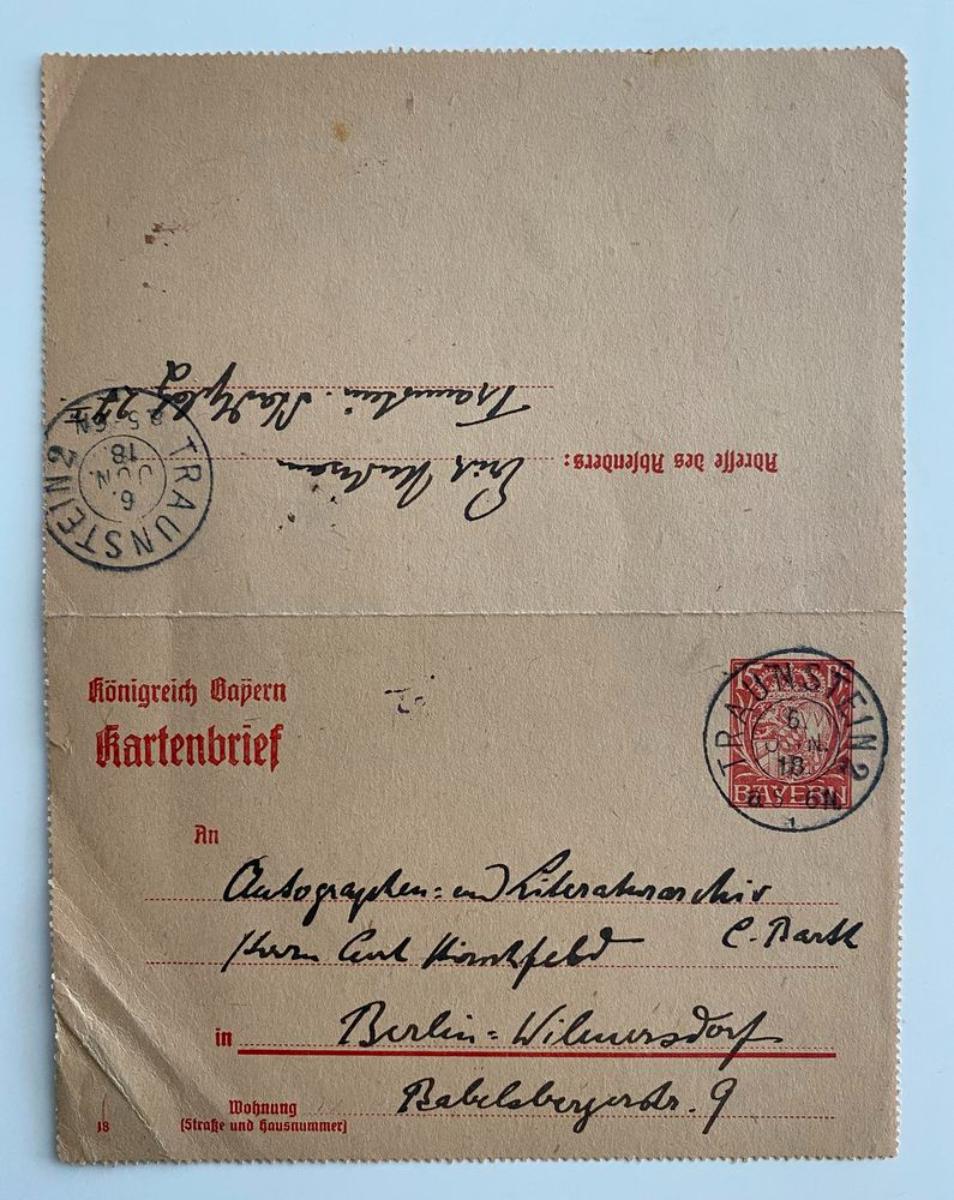 Adresse des Absenders: Erich Mühsam
Traunstein. Stadtplatz
TRAUNSTEIN 2
6.
JUN.
18.
N 5-6 N
Königreich Bayern
Kartenbrief
PF
TRAUNSTEIN 2
6
JUN.
18.
5-6 N.
1
BAYERN
An
Autographen- und Literaturarchiv
Herrn Curt Hirschfeld
C. Barth
in Berlin-Wilmersdorf
Wohnung
(Straße und Hausnummer)
Babelsbergerstr. 9
18